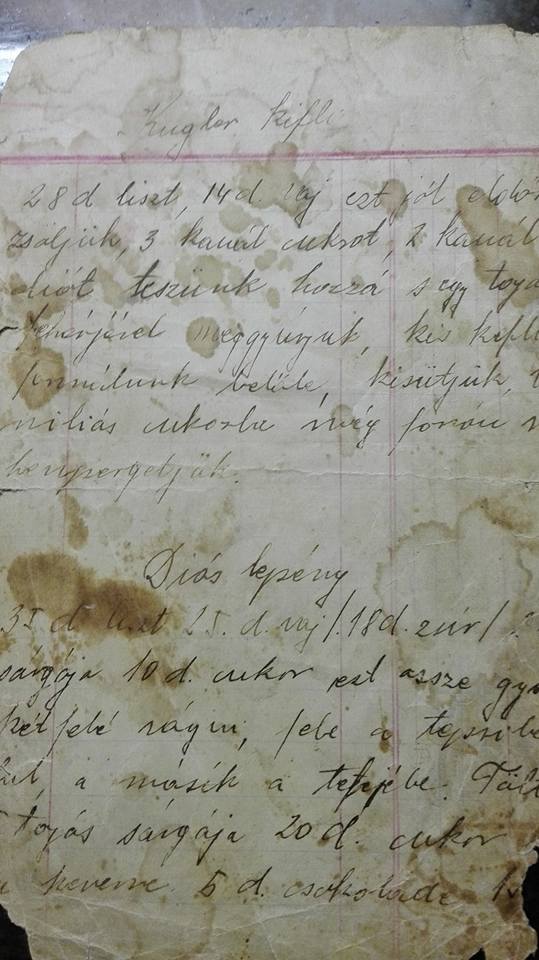 Kugler kifli
28 d liszt, 14 d. vaj ezt jól eldör
zsöljük, 3 kanál cukrot, 2 kanál
diót teszünk hozzá s egy tojá
fehérjével meggyúrjuk, kis kifli
formálunk belőle, kisütjük,
niliás cukorba még forrón
hempergetjük.
Diós lepény
35 d liszt 25. d. vaj /.18 d. zsír/
sárgája 10 d. cukor ezt össze gyú
két felé vágni, fele a tepsibe
a másik a tetejébe. Tölt
tojás sárgája 20 d. cukor
keverve 5 d. csokoládé